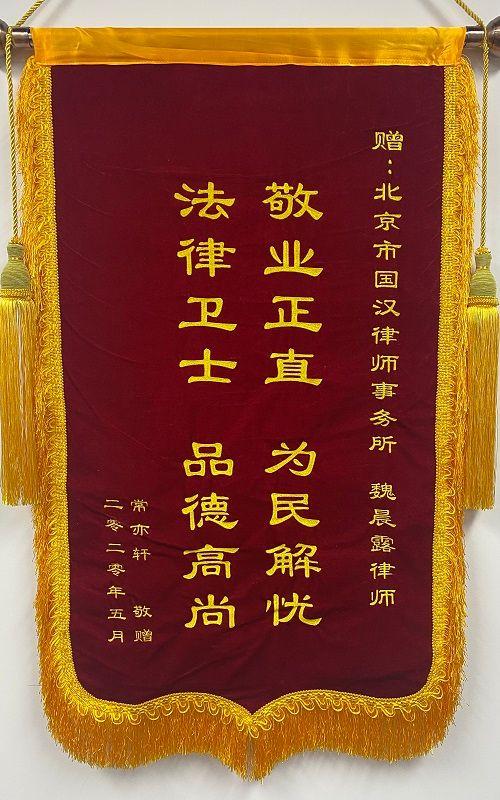 赠：北京市国汉律师事务所 魏晨露律师
敬业正直 为民解忧
法律卫士 品德高尚
常亦轩 敬赠
二零二零年五月